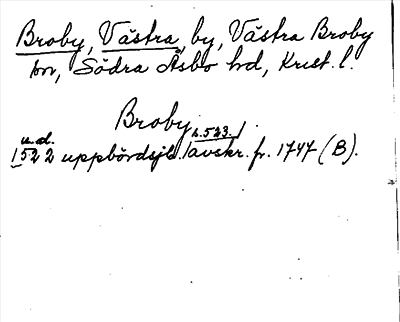 Broby, Västra, by, Västra Broby
sn, Södra Åsbo hd, Krist. l.
Broby s. 523.
u.d.
1522 uppbördsjb. avskr. fr. 1747 (B).